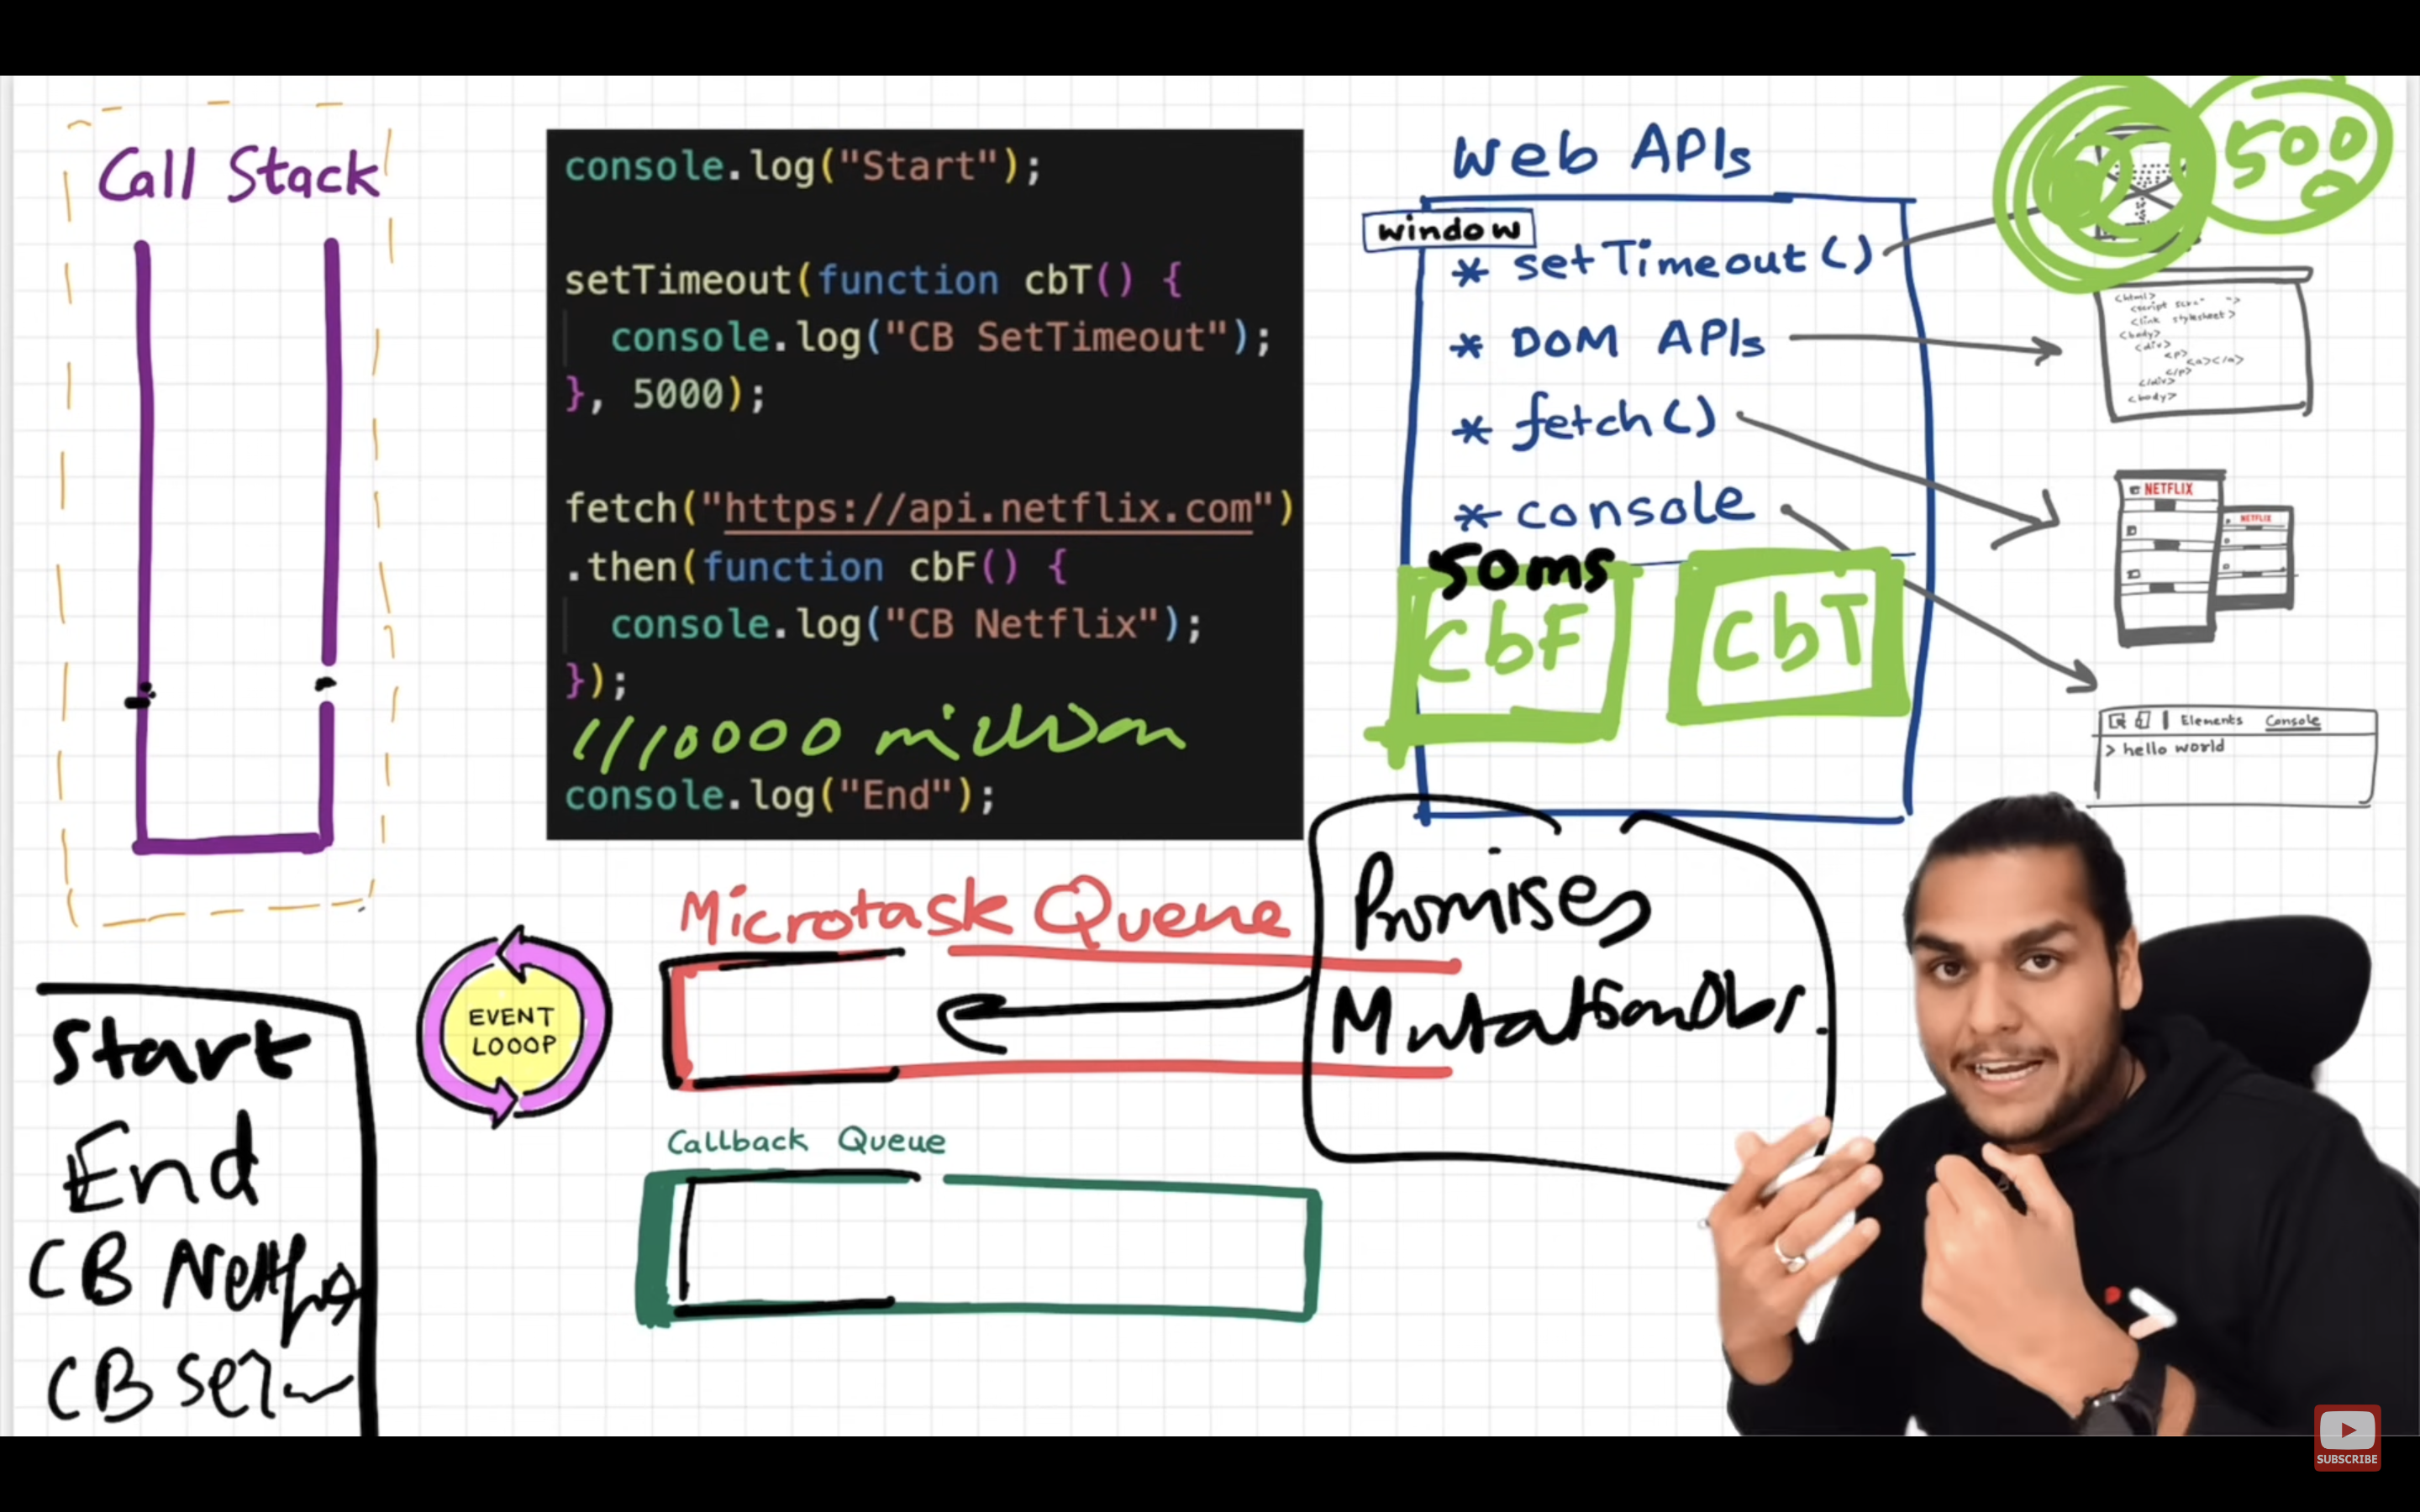 Call Stack
console.log("Start");
setTimeout(function cbT() {
console.log("CB SetTimeout");
}, 5000);
fetch("https://api.netflix.com")
.then(function cbF() {
console.log("CB Netflix");
});
10000 million
console.log("End");
Web APIs
window
* setTimeout()
* DOM APIs
* fetch()
* console
50ms
CbF
CbT
5000
<html>
<link stylesheet>
<body>
<div>
<p>
<a></a>
</p>
</div>
<body>
NETFLIX
NETFLIX
Elements Console
> hello world
Microtask Queue
Promises
MutationObs.
EVENT
LOOOP
Callback Queue
Start
End
CB
CB Set
SUBSCRIBE